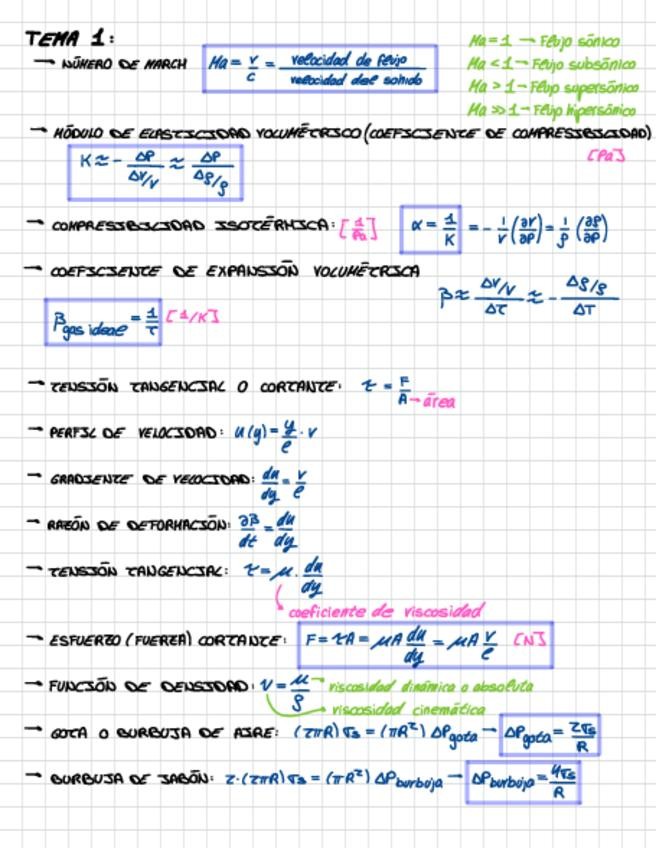 TEMA 1:
→ NÚMERO DE MARCH Ma = v/c = velocidad de flujo / velocidad del sonido
Ma = 1 → Flujo sónico
Ma < 1 → Flujo subsónico
Ma > 1 → Flujo supersónico
Ma >> 1 → Flujo hipersónico
→ MÓDULO DE ELASTICIDAD VOLUMÉTRICO (COEFICIENTE DE COMPRESIBILIDAD)
[Pa]
K ≈ - ΔP / (ΔV/V) ≈ ΔP / (Δρ/ρ)
→ COMPRESIBILIDAD ISOTÉRMICA: [1/Pa] α = 1/K = - 1/V (∂V/∂P) = 1/ρ (∂ρ/∂P)
→ COEFICIENTE DE EXPANSIÓN VOLUMÉTRICA
β ≈ (ΔV/V) / ΔT ≈ - (Δρ/ρ) / ΔT
β gas ideal = 1/T [1/K]
→ TENSIÓN TANGENCIAL O CORTANTE: τ = F/A → área
→ PERFIL DE VELOCIDAD: u(y) = y/e · v
→ GRADIENTE DE VELOCIDAD: du/dy = v/e
→ RAZÓN DE DEFORMACIÓN: ∂β/dt = du/dy
→ TENSIÓN TANGENCIAL: τ = μ · du/dy
coeficiente de viscosidad
→ ESFUERZO (FUERZA) CORTANTE: F = τA = μA du/dy = μA v/e [N]
→ FUNCIÓN DE DENSIDAD: ν = μ/ρ → viscosidad dinámica o absoluta
→ viscosidad cinemática
→ GOTA O BURBUJA DE AIRE: (2πR) σs = (πR²) ΔP gota → ΔP gota = 2σs/R
→ BURBUJA DE JABÓN: 2·(2πR) σs = (πR²) ΔP burbuja → ΔP burbuja = 4σs/R